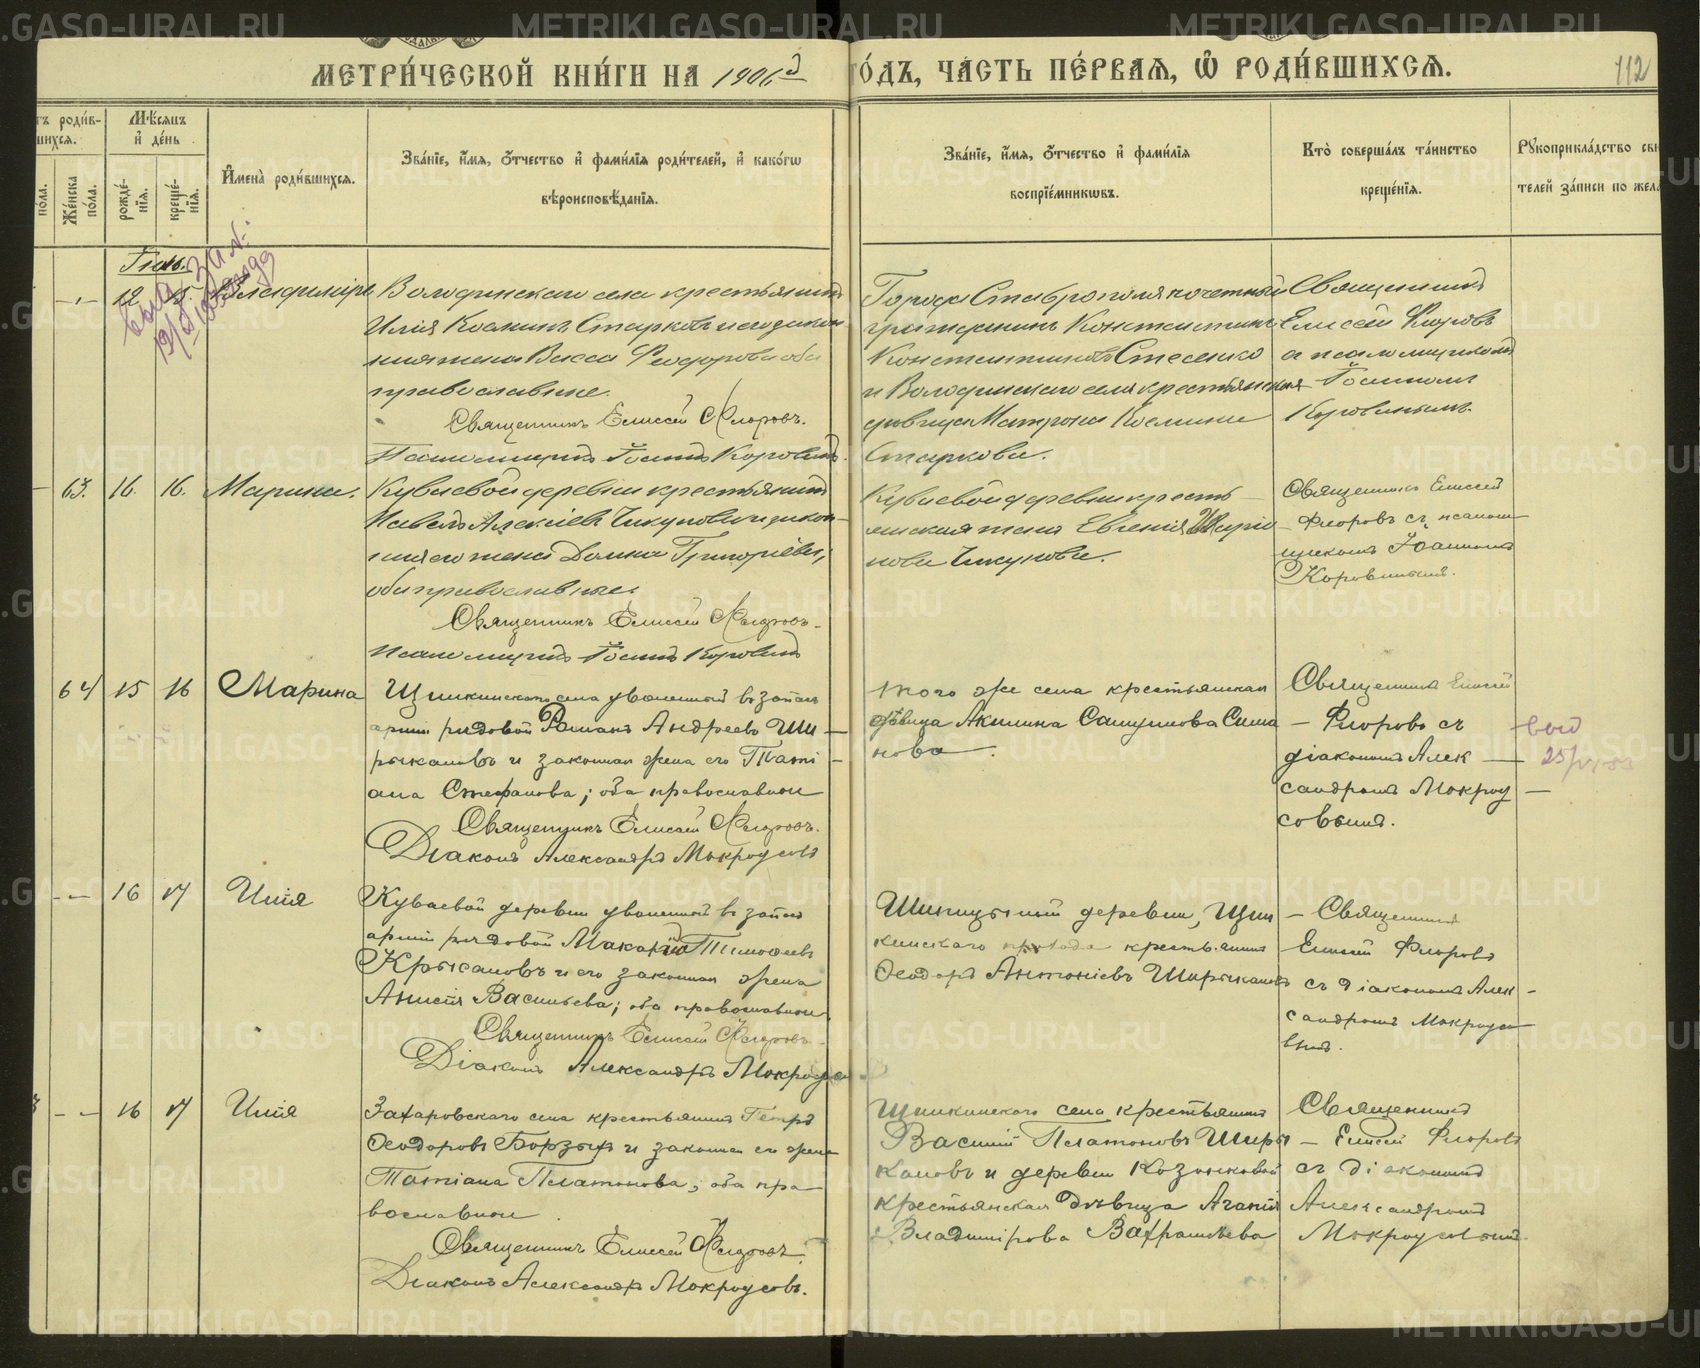 МЕТРИ́ЧЕСКОЙ КНИ́ГИ НА 1906й
ГО́ДЪ, ЧА́СТЬ ПЕ́РВАѦ, Ѽ РОДИ́ВШИХСѦ.
112
роди́в-
шихся.
Мѣ́сяцъ
и҆ де́нь
по́ла.
Же́нска
по́ла.
рожде́-
нїя.
креще́-
нїя.
И҆мена̀ роди́вшихся.
Зва́нїе, и҆́мя, ѻ҆́тчество и҆ фами́лїя роди́телей, и҆ како́гѡ
вѣроисповѣ́данїя.
Зва́нїе, и҆́мя, ѻ҆́тчество и҆ фами́лїя
воспрїе́мникѡвъ.
Кто̀ соверша́лъ та́инство
креще́нїя.
Рꙋкоприкла́дство сви
телей за́писи по жела
Іюль.
12 15. Владиміръ
Володинскаго села крестьянинъ
Илія Косминъ Старковъ и его закон
ная жена Васса Феодорова оба
православные.
Священникъ Елисей Флоровъ.
Псаломщикъ Іоаннъ Коровинъ.
Города Ставрополя почетный
гражданинъ Константинъ
Константиновъ Стесенко
и Володинскаго села крестьянская
девица Матрона Космина
Старкова.
Священникъ
Елисей Флоровъ
и псаломщикомъ
Іоанномъ
Коровинымъ.
63. 16. 16. Марина.
Куваевой деревни крестьянинъ
Павелъ Алексіевъ Чикуновъ и закон-
ная его жена Домна Григоріева,
оба православные.
Священникъ Елисей Флоровъ.
Псаломщикъ Іоаннъ Коровинъ
Куваевой деревни кресть-
янская жена Евгенія Марко
нова Чикунова.
Священникъ Елисей
Флоровъ съ псалом-
щикомъ Іоанномъ
Коровинымъ.
64 15 16 Марина
Щипкинскаго села уволенный въ запасъ
арміи рядовой Романъ Андреевъ Ши-
рыкаловъ и законная жена его Таті-
ана Стефанова; оба православные
Священникъ Елисей Флоровъ.
Діаконъ Александръ Мокроусовъ
того же села крестьянская
дѣвица Акилина Самуилова Сима-
нова.
Священникъ Елисей
Флоровъ съ
діакономъ Алек-
сандромъ Мокроу-
совымъ.
выд
25/
16 17 Илія
Куваевой деревни уволенный въ запасъ
арміи рядовой Макарій Тимофеевъ
Крысановъ и его законная жена
Анисія Васильева; оба православные
Священникъ Елисей Флоровъ
Діаконъ Александръ Мокроусовъ
Шипицыной деревни, Щип-
кинскаго прихода крестьянинъ
Ѳеодоръ Антоніевъ Ширыкаловъ
Священникъ
Елисей Флоровъ
съ діакономъ Алек-
сандромъ Мокроусо-
вымъ.
16 17 Илія
Захаровскаго села крестьянинъ Петръ
Ѳеодоровъ Борзыхъ и законная его жена
Татіана Платонова; оба пра-
вославные
Священникъ Елисей Флоровъ
Діаконъ Александръ Мокроусовъ.
Щипкинскаго села крестьянинъ
Василій Платоновъ Шыры-
каловъ и деревни Козонковой
крестьянская дѣвица Агапія
Владимірова Вахрамеева
Священникъ
Елисей Флоровъ
съ діакономъ
Александромъ
Мокроусовымъ.
METRIKI.GASO-URAL.RU